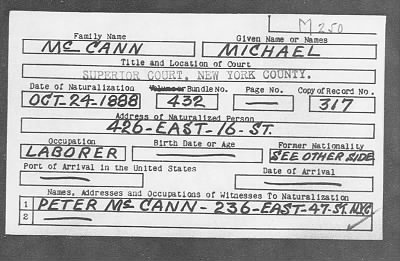 M 250
Family Name Given Name or Names
McCANN MICHAEL
Title and Location of Court
SUPERIOR COURT, NEW YORK COUNTY.
Date of Naturalization Volume or Bundle No. Page No. Copy of Record No.
OCT-24-1888 432 — 317
Address of Naturalized Person
426-EAST-16-ST.
Occupation Birth Date or Age Former Nationality
LABORER — SEE OTHER SIDE
Port of Arrival in the United States Date of Arrival
— —
Names, Addresses and Occupations of Witnesses To Naturalization
1 PETER McCANN - 236-EAST-47-ST. N.Y.C.
2 —